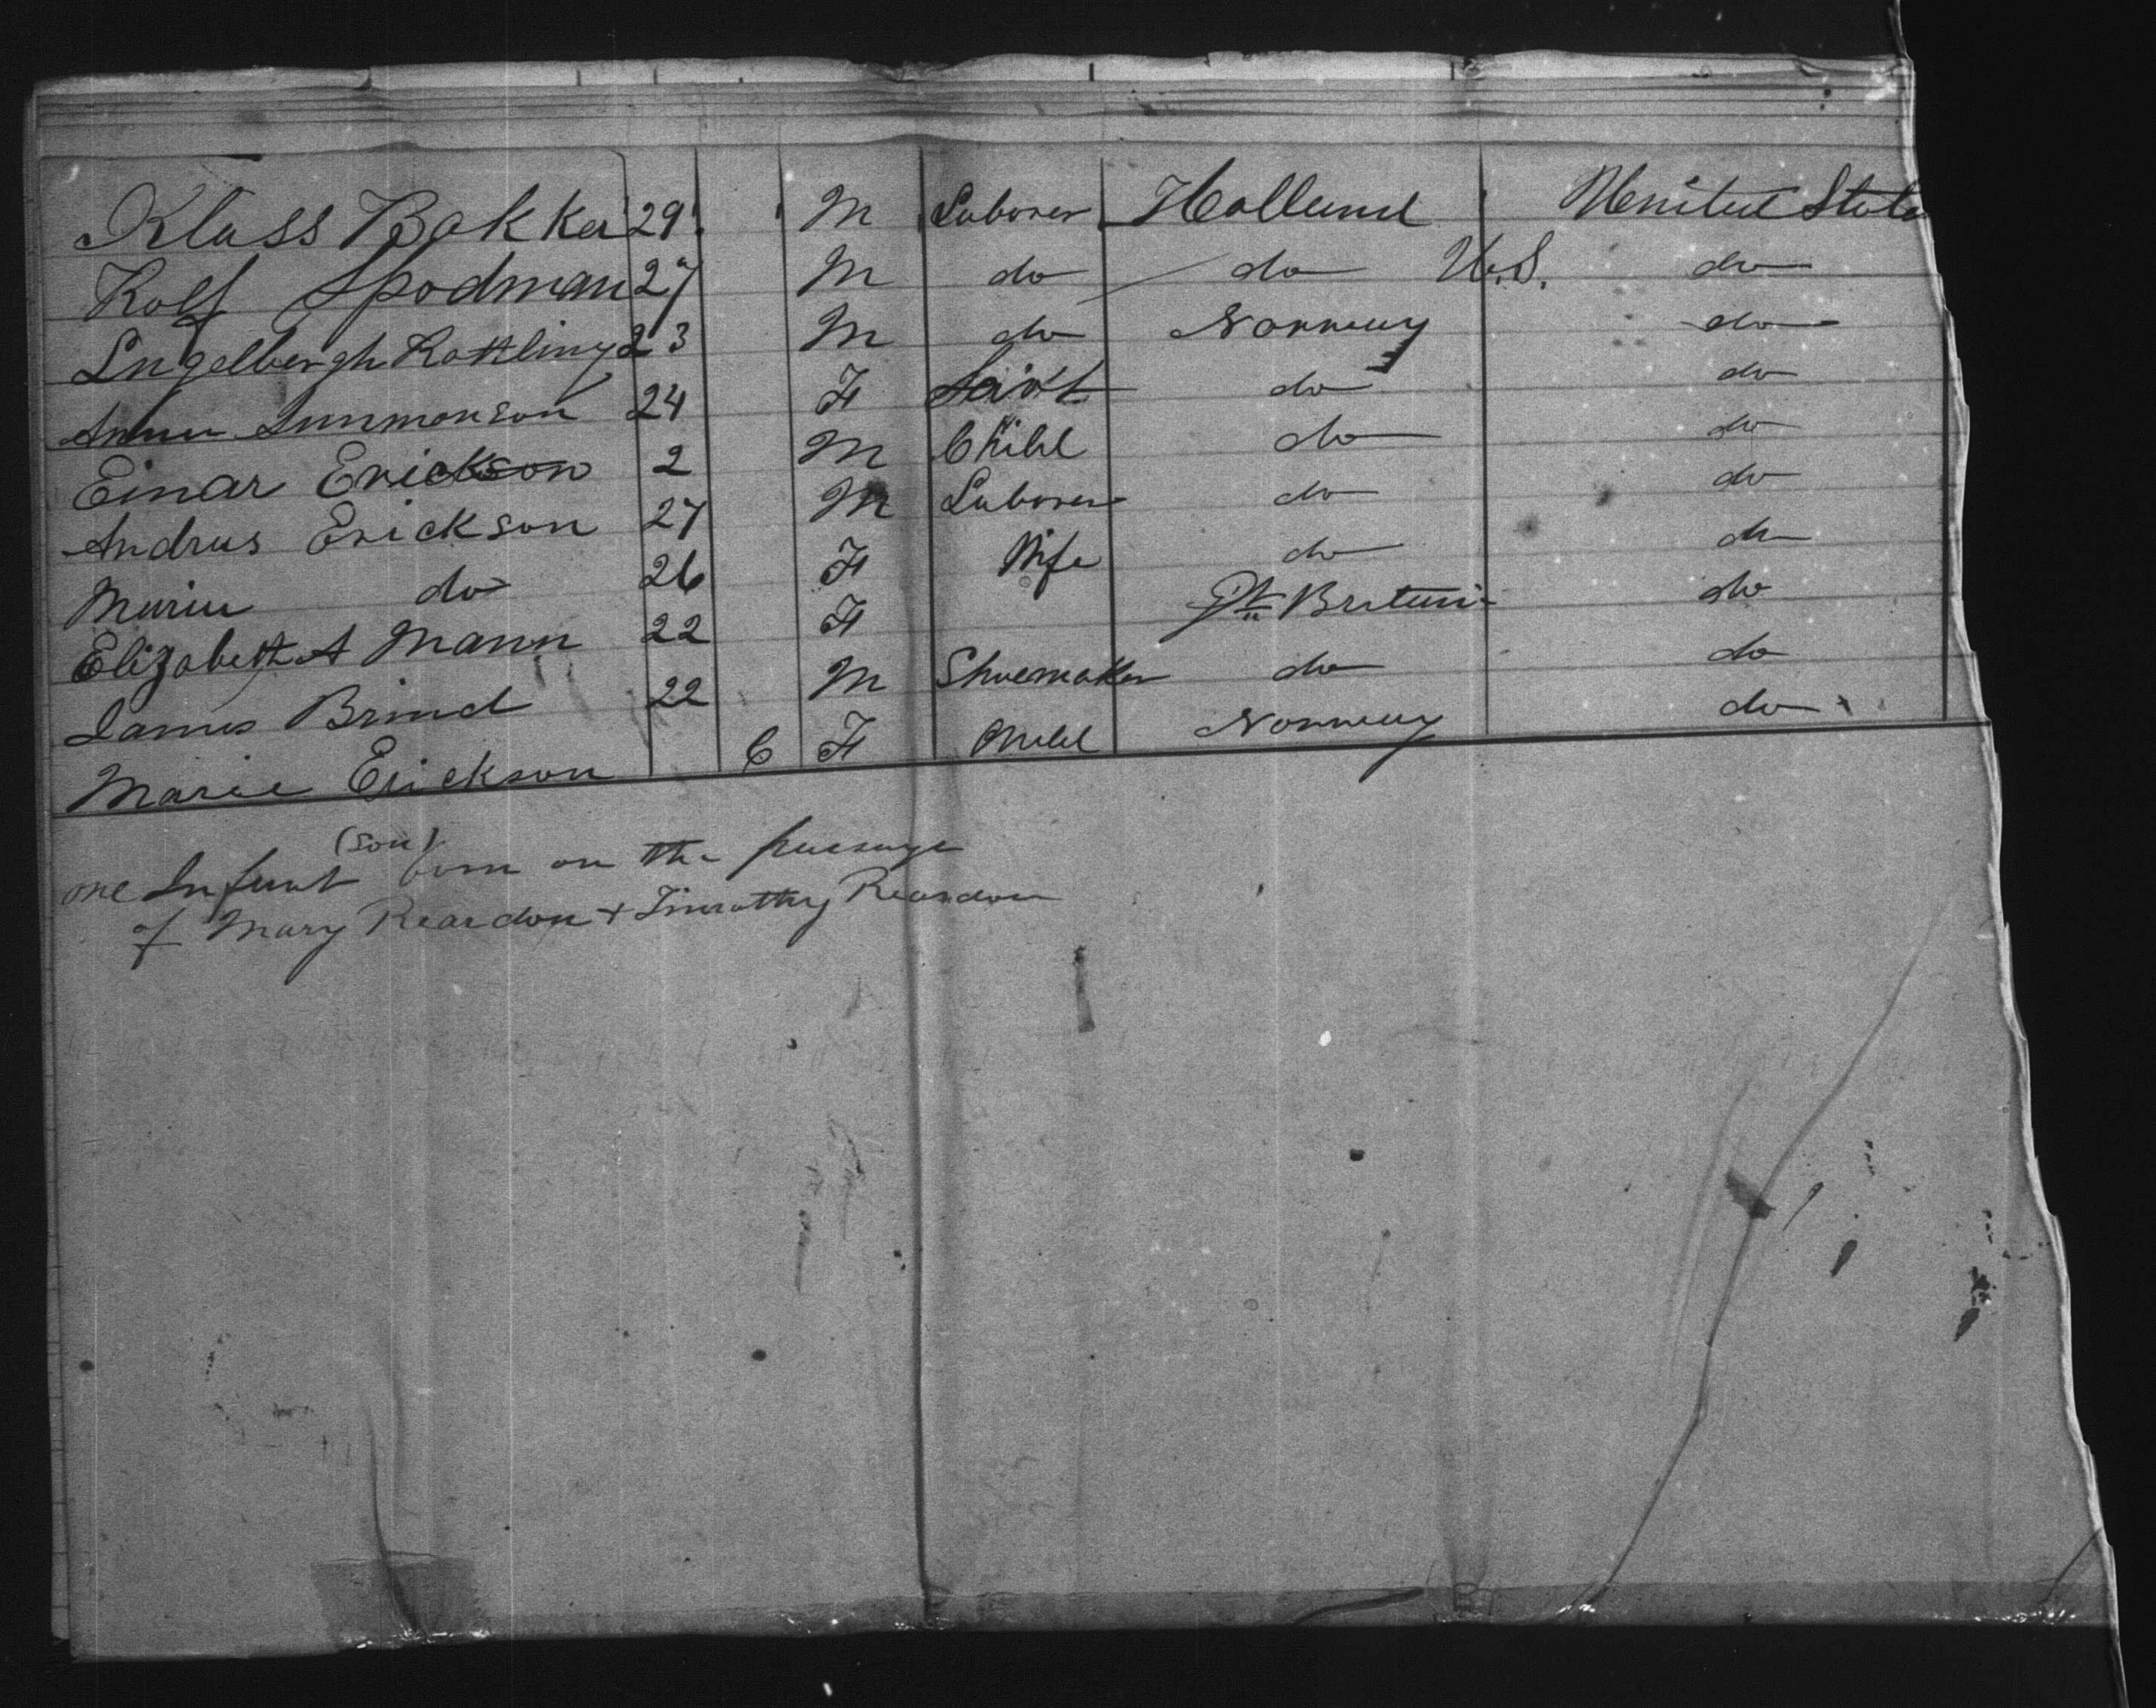 Klass Bakker 29 M Laborer Holland United States
Rolf Spodman 27 M do do U.S. do
Engelbergh Rottling 23 M do Norway do
AnnaUnmonson 24 F do do
Einar Erickson 2 M Child do do
Andrus Erickson 27 M Laborer do do
Maria do 26 F Wife do do
Elizabeth A Mann 22 F Gt Britain do
James Brind 22 M Shoemaker do do
Marie Erickson 6 F Child Norway do
(son)
one Infant born on the passage
of Mary Reardon + Timothy Reardon